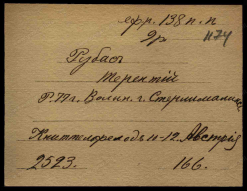 ефр. 138 п. п
9р 1174
Рубас
Терентій
Р. П. г. Волын. г.
Книттельфельдъ 11-12. Австрія
2523. 166.